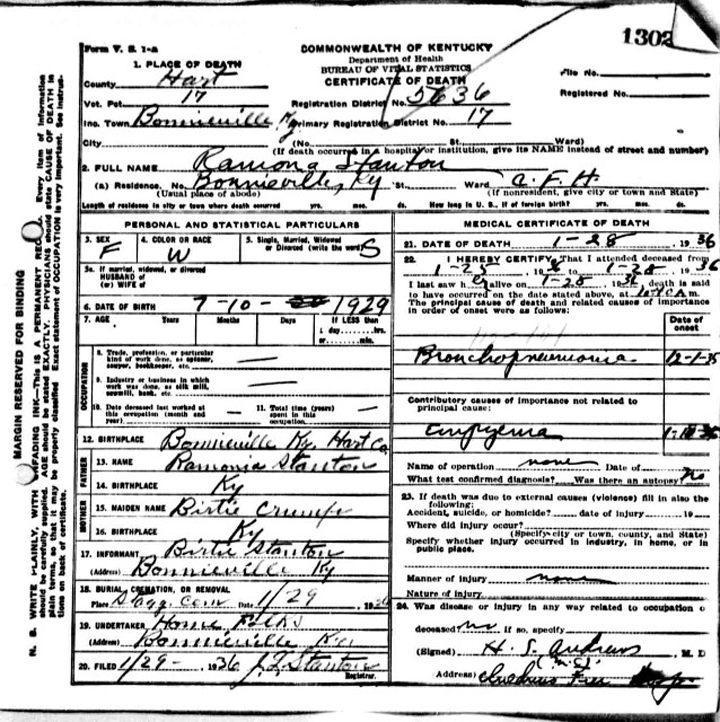 1302
Form V. S. 1-A
COMMONWEALTH OF KENTUCKY
Department of Health
BUREAU OF VITAL STATISTICS
CERTIFICATE OF DEATH
1. PLACE OF DEATH
County Hart
File No.
Vot. Pct 17
Registration District No. 5636
Registered No.
Inc. Town Bonnieville, Ky. Primary Registration District No. 17
City (No. St. Ward)
(If death occurred in a hospital or institution, give its NAME instead of street and number)
2. FULL NAME Ramona Stanton
(a) Residence, No. Bonnieville, Ky St. Ward
(Usual place of abode) (If nonresident, give city or town and State)
Length of residence in city or town where death occurred yrs. mos. ds. How long in U. S., if of foreign birth? yrs. mos. ds.
PERSONAL AND STATISTICAL PARTICULARS
3. SEX F
4. COLOR OR RACE W
5. Single, Married, Widowed or Divorced (write the word) S
5a. If married, widowed, or divorced
HUSBAND of
(or) WIFE of
6. DATE OF BIRTH 7-10- 1929
7. AGE Years Months Days If LESS than
1 day hrs.
or min.
OCCUPATION
8. Trade, profession, or particular
kind of work done, as spinner,
sawyer, bookkeeper, etc.
9. Industry or business in which
work was done, as silk mill,
sawmill, bank, etc.
10. Date deceased last worked at
this occupation (month and
year)
11. Total time (years)
spent in this
occupation
12. BIRTHPLACE Bonnieville Ky. Hart Co.
FATHER
13. NAME Ramonia Stanton
14. BIRTHPLACE Ky
MOTHER
15. MAIDEN NAME Birtie Crump
16. BIRTHPLACE Ky
17. INFORMANT Birtie Stanton
(Address) Bonnieville Ky
18. BURIAL, CREMATION, OR REMOVAL
Place Date 1/29, 1936
19. UNDERTAKER Home Folks
(Address) Bonnieville Ky
20. FILED 1/29- 1936 J. T. Stanton
Registrar.
MEDICAL CERTIFICATE OF DEATH
21. DATE OF DEATH 1-28, 1936
22. I HEREBY CERTIFY, That I attended deceased from
1-25, 1936 to 1-28, 1936
I last saw her alive on 1-28, 1936, death is said
to have occurred on the date stated above, at m.
The principal cause of death and related causes of importance
in order of onset were as follows:
Date of
onset
Bronchopneumonia 12-1-35
Contributory causes of importance not related to
principal cause:
Empyema
Name of operation none Date of
What test confirmed diagnosis? Was there an autopsy? No
23. If death was due to external causes (violence) fill in also the
following:
Accident, suicide, or homicide? date of injury 19
Where did injury occur?
(Specify city or town, county, and State)
Specify whether injury occurred in industry, in home, or in
public place.
Manner of injury none
Nature of injury
24. Was disease or injury in any way related to occupation o
deceased? no If so, specify
(Signed) H. S. Andrews, M. D
Address)
MARGIN RESERVED FOR BINDING
N. B. WRITE PLAINLY, WITH UNFADING INK—This is a PERMANENT RECORD. Every item of information
should be carefully supplied. AGE should be stated EXACTLY. PHYSICIANS should state CAUSE OF DEATH in
plain terms, so that it may be properly classified. Exact statement of OCCUPATION is very important. See instruc-
tions on back of certificate.